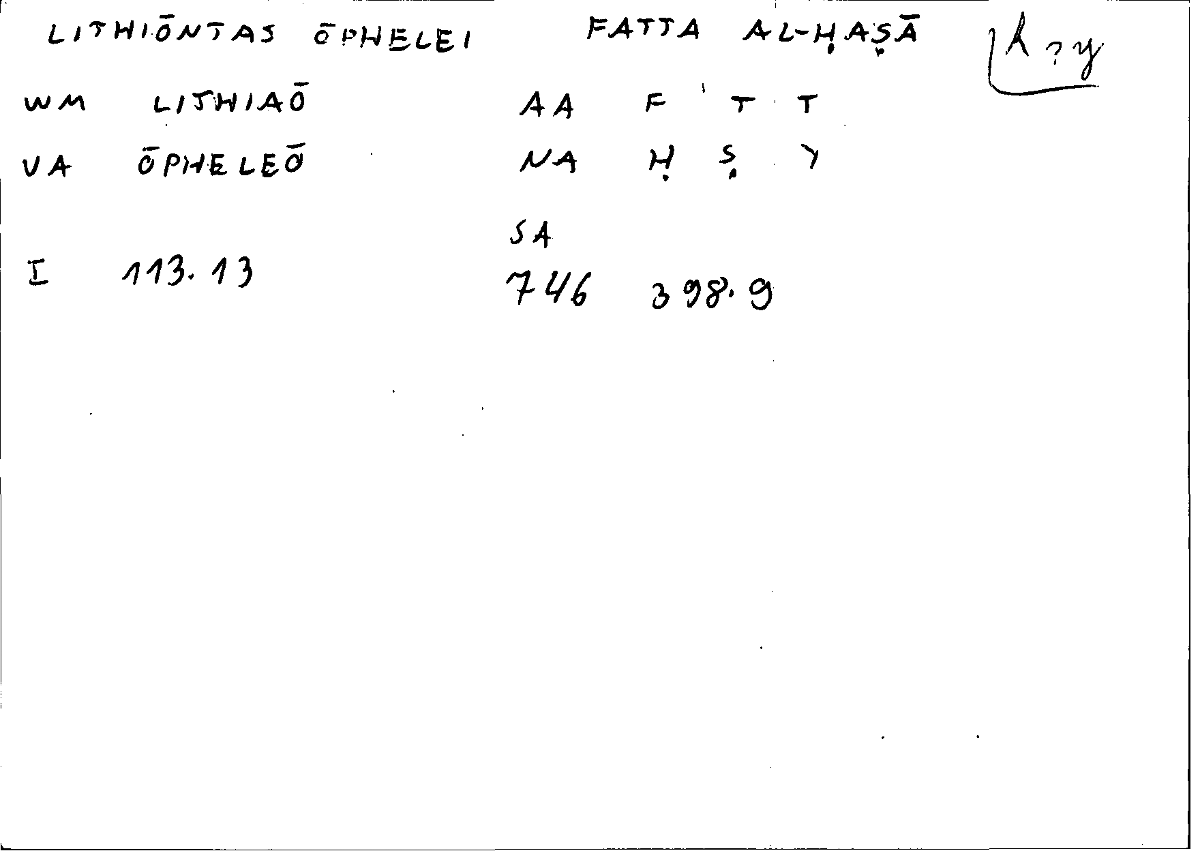 LITHIŌNTAS ŌPHELEI FATTA AL-ḤAṢĀ ḥṣy
WM LITHIAŌ AA F T T
VA ŌPHELEŌ NA Ḥ Ṣ Y
SA
I 113.13 746 398.9